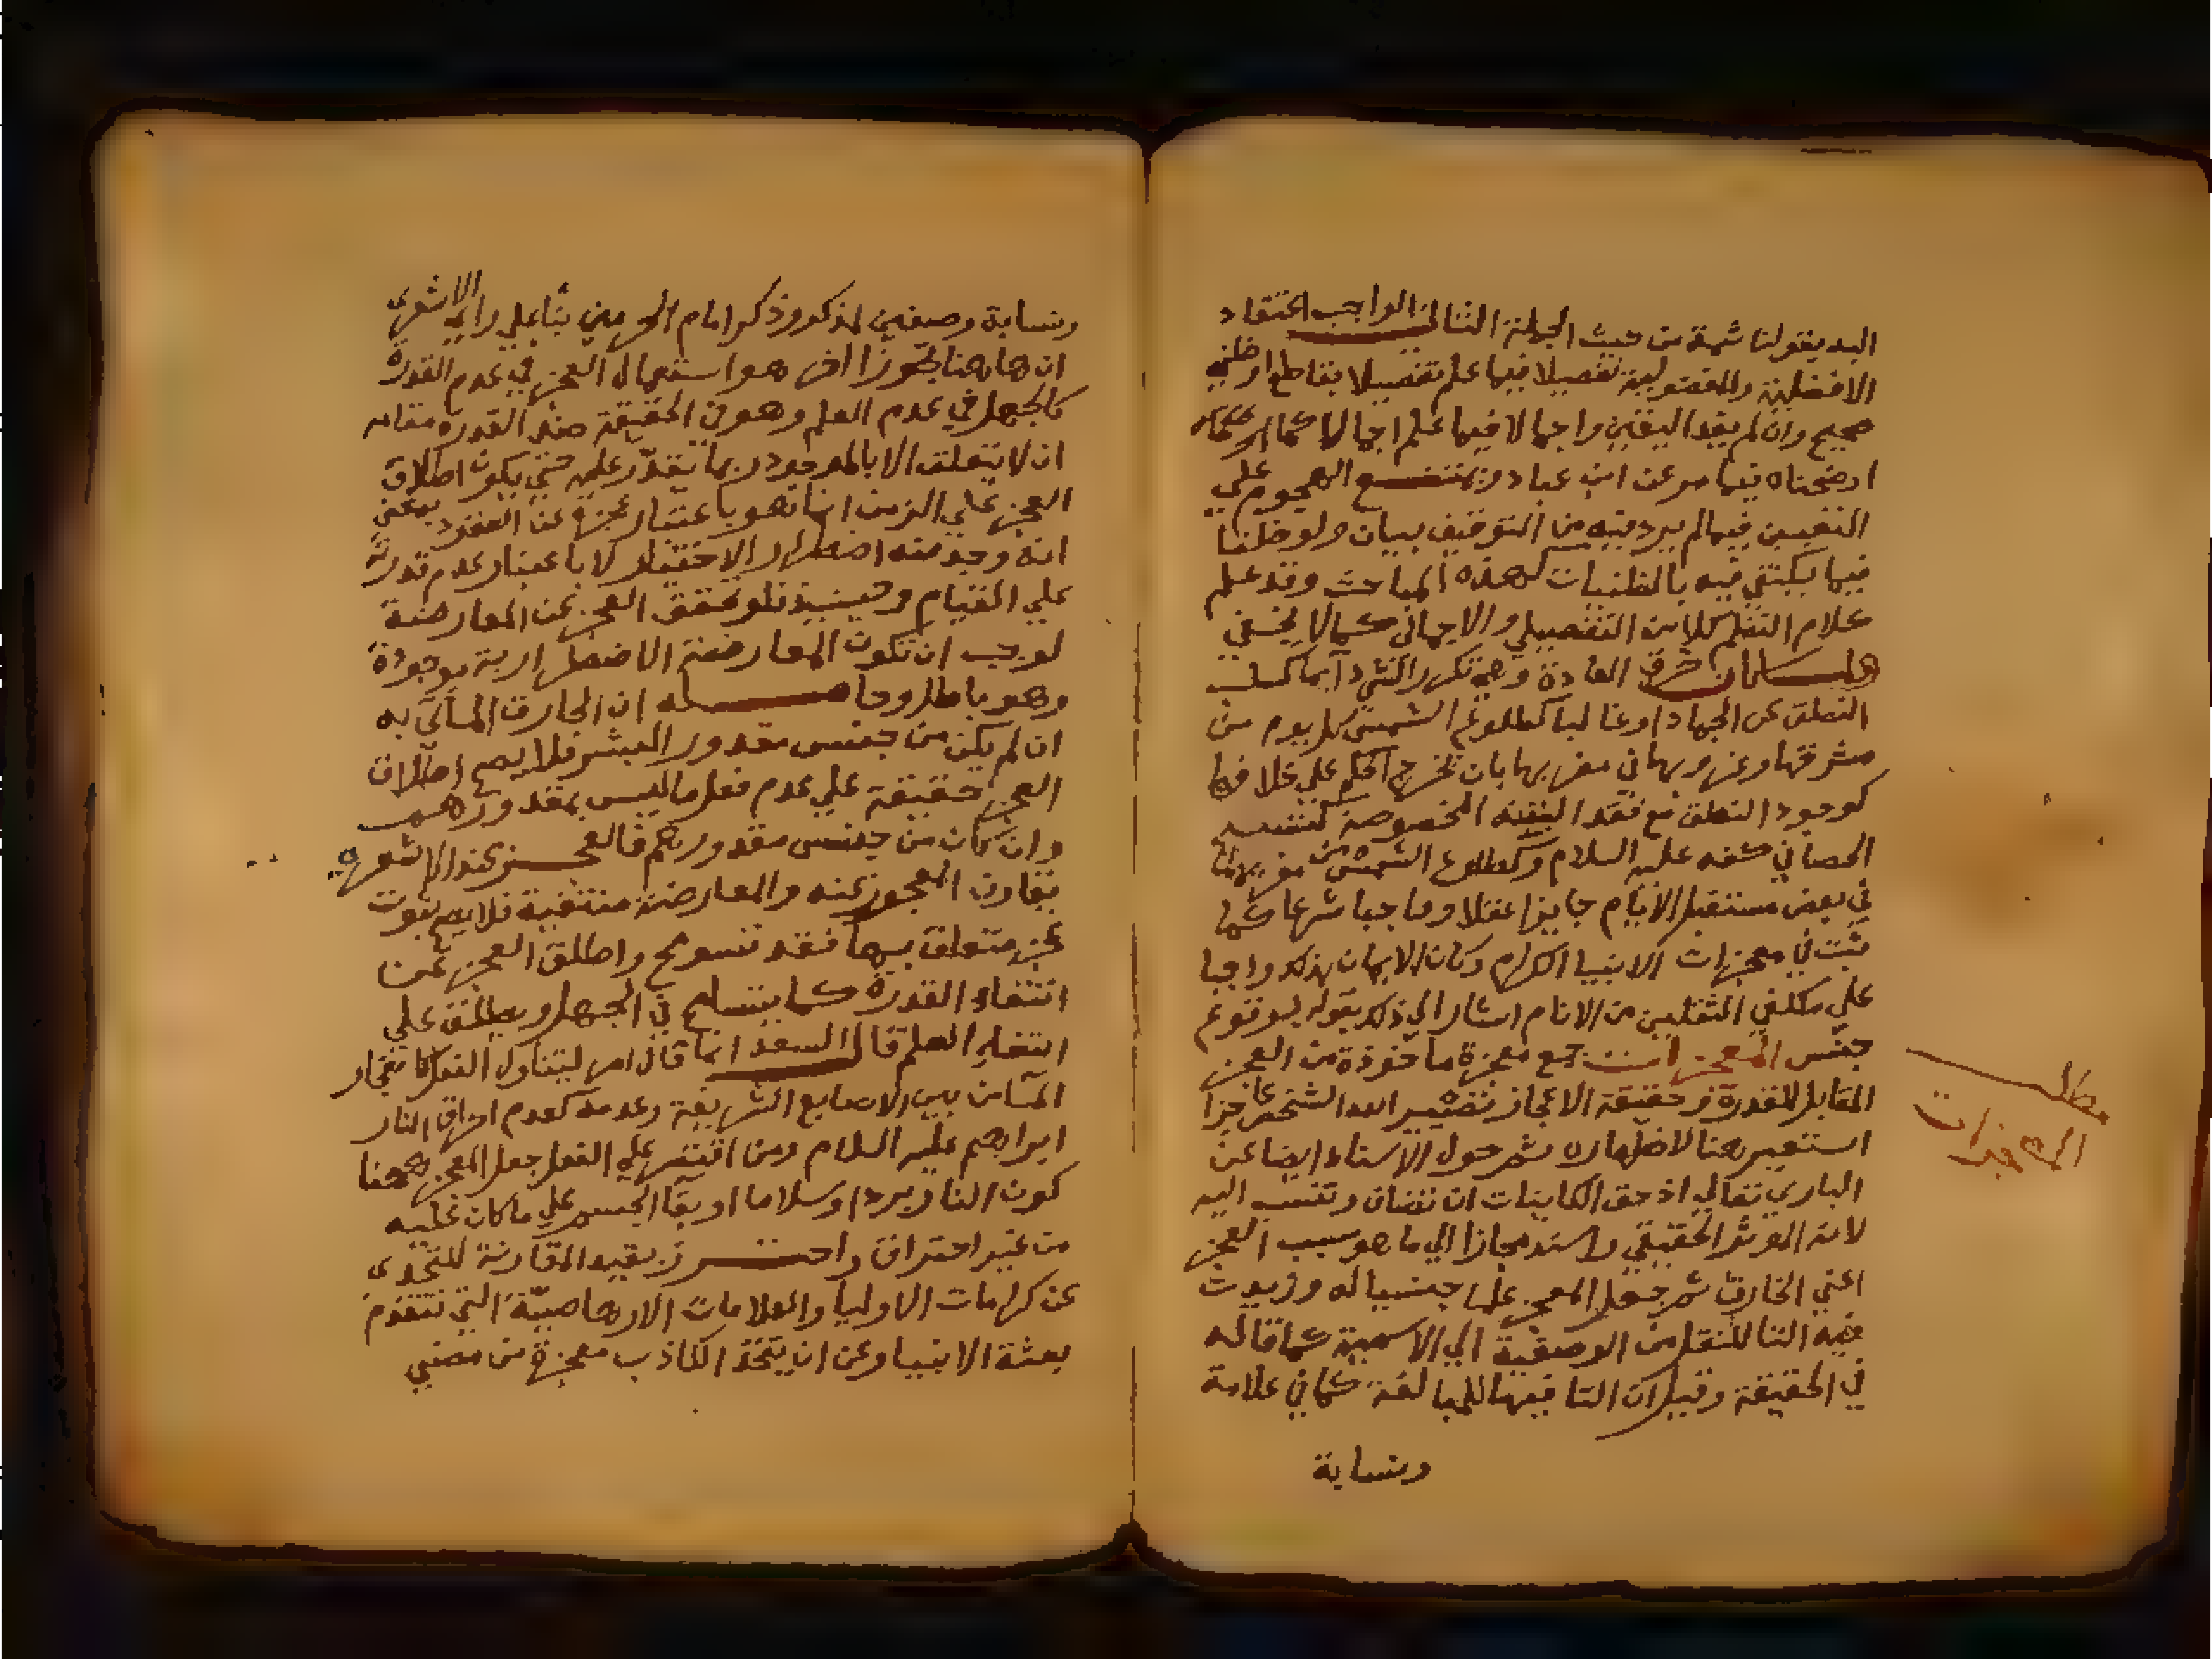 اليه بقولنا ثمة من حيث الجملة الثاني الواجب اعتقاد
الافضلية والمفضولية تفصيلا فيما علم تفصيلا بقاطع او ظني
صحيح وان لم يفد اليقين واجمالا فيما علم اجمالا كما
اوضحناه فيما مر عن ابن عباد ويمتنع الهجوم علي
التعيين فيما لم يرد فيه من التوقيف بيان ولو ظنيا
فيما يكتفي فيه بالظنيات كهذه المباحث وقد علم
كلام الناظم كلا من التفصيلي والاجمالي كما لا يخفي
ولما كان خرق العادة وهي تكرر الشي دايما كسلب
النطق عن الجماد او غالبا كطلوع الشمس كل يوم من
مشرقها وغروبها في مغربها بان تخرج الحكم علي خلافها
كوجود النطق مع فقد البنية المخصوصة كتسبيح
الحصا في كفه عليه السلام وكطلوع الشمس من مغربها
في بعض مستقبل الايام جايزا عقلا وواجبا شرعا كما
ثبت في معجزات الانبيا الكرام وكان الايمان بذلك واجبا
علي مكلفي الثقلين من الانام اشار الي ذلك بقوله بوقوع
جنس المعجزات جمع معجزة ماخوذة من العجز
المقابل للقدرة وحقيقة الاعجاز تصيير الله الشخص عاجزا
استعير هنا لاظهاره ثم حول الاسناد ايضا عن
الباري تعالي اذ حق الكاينات ان تضاف وتنسب اليه
لانه الموثر الحقيقي واسند مجازا الي ما هو سبب العجز
اعني الخارق ثم جعل المعجز علما جنسيا له وزيدت
فيه التا للنقل من الوصفية الي الاسمية كما قاله
في الحقيقة وقيل ان التا فيها للمبالغة كما في علامة
ونسابة
مطلب
المعجزات
ونسابة وصيغتي لمذكر وذكر امام الحرمين بنا علي راي الاشعري
ان هاهنا تجوزا اخر هو استعمال العجز في عدم القدرة
كالجهل في عدم العلم وهو في الحقيقة ضد القدرة
ان لا يتعلق الا بالموجود وبما يقدر عليه حتي يكون اطلاق
العجز علي الزمن انما هو باعتبار عجزه عن القعود بمعني
انه وجد منه اضطرارا لا اختيارا لا باعتبار عدم قدرته
علي القيام وحينيذ فلو تحقق العجز عن المعارضة
لوجب ان تكون المعارضة الاضطرارية موجودة
وهو باطل وحاصله ان الخارق الماتي به
ان لم يكن من جنس مقدور البشر فلا يصح اطلاق
العجز حقيقة علي عدم فعل ما ليس بمقدورهم
وان كان من جنس مقدورهم فالعجز عند الاشعري
يقارن المعجوز عنه والمعارضة منتفية فلا يصح ثبوت
عجز متعلق بها فقد تسومح واطلق العجز عن
انتفاء القدرة كما يتسامح في الجهل ويطلق علي
انتفاء العلم قال السعد انما قال امر ليتناول الفعل كانفجار
المآ من بين الاصابع الشريفة وعدمه كعدم احراق النار
ابراهيم عليه السلام ومن اقتصر علي الفعل جعل المعجز ههنا
كون النار بردا وسلاما او بقا الجسم علي ما كان عليه
من غير احتراق واحترز بقيد المقارنة للتحدي
عن كرامات الاوليا والعلامات الارهاصية التي تتقدم
بعثة الانبيا وعن ان يتخذ الكاذب معجزة من مضي